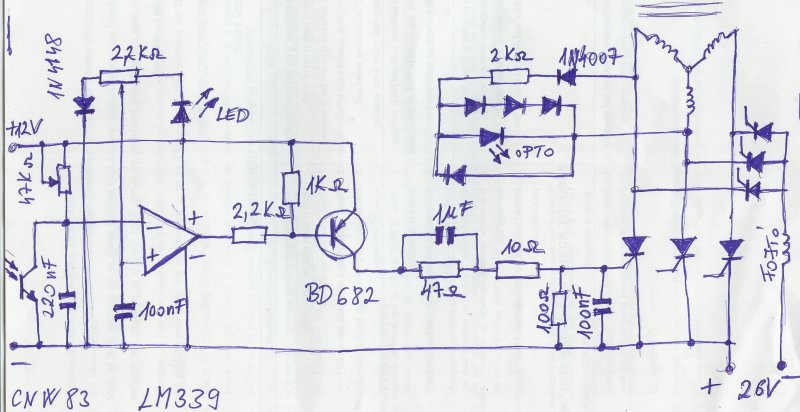 1N4148
2,2KΩ
LED
+12V
47KΩ
1KΩ
2,2KΩ
+
−
−
+
220nF
100nF
BD682
2KΩ
1N4007
OPTO
1µF
47Ω
10Ω
100Ω
100nF
+ 26V −
−
CNW83 LM339